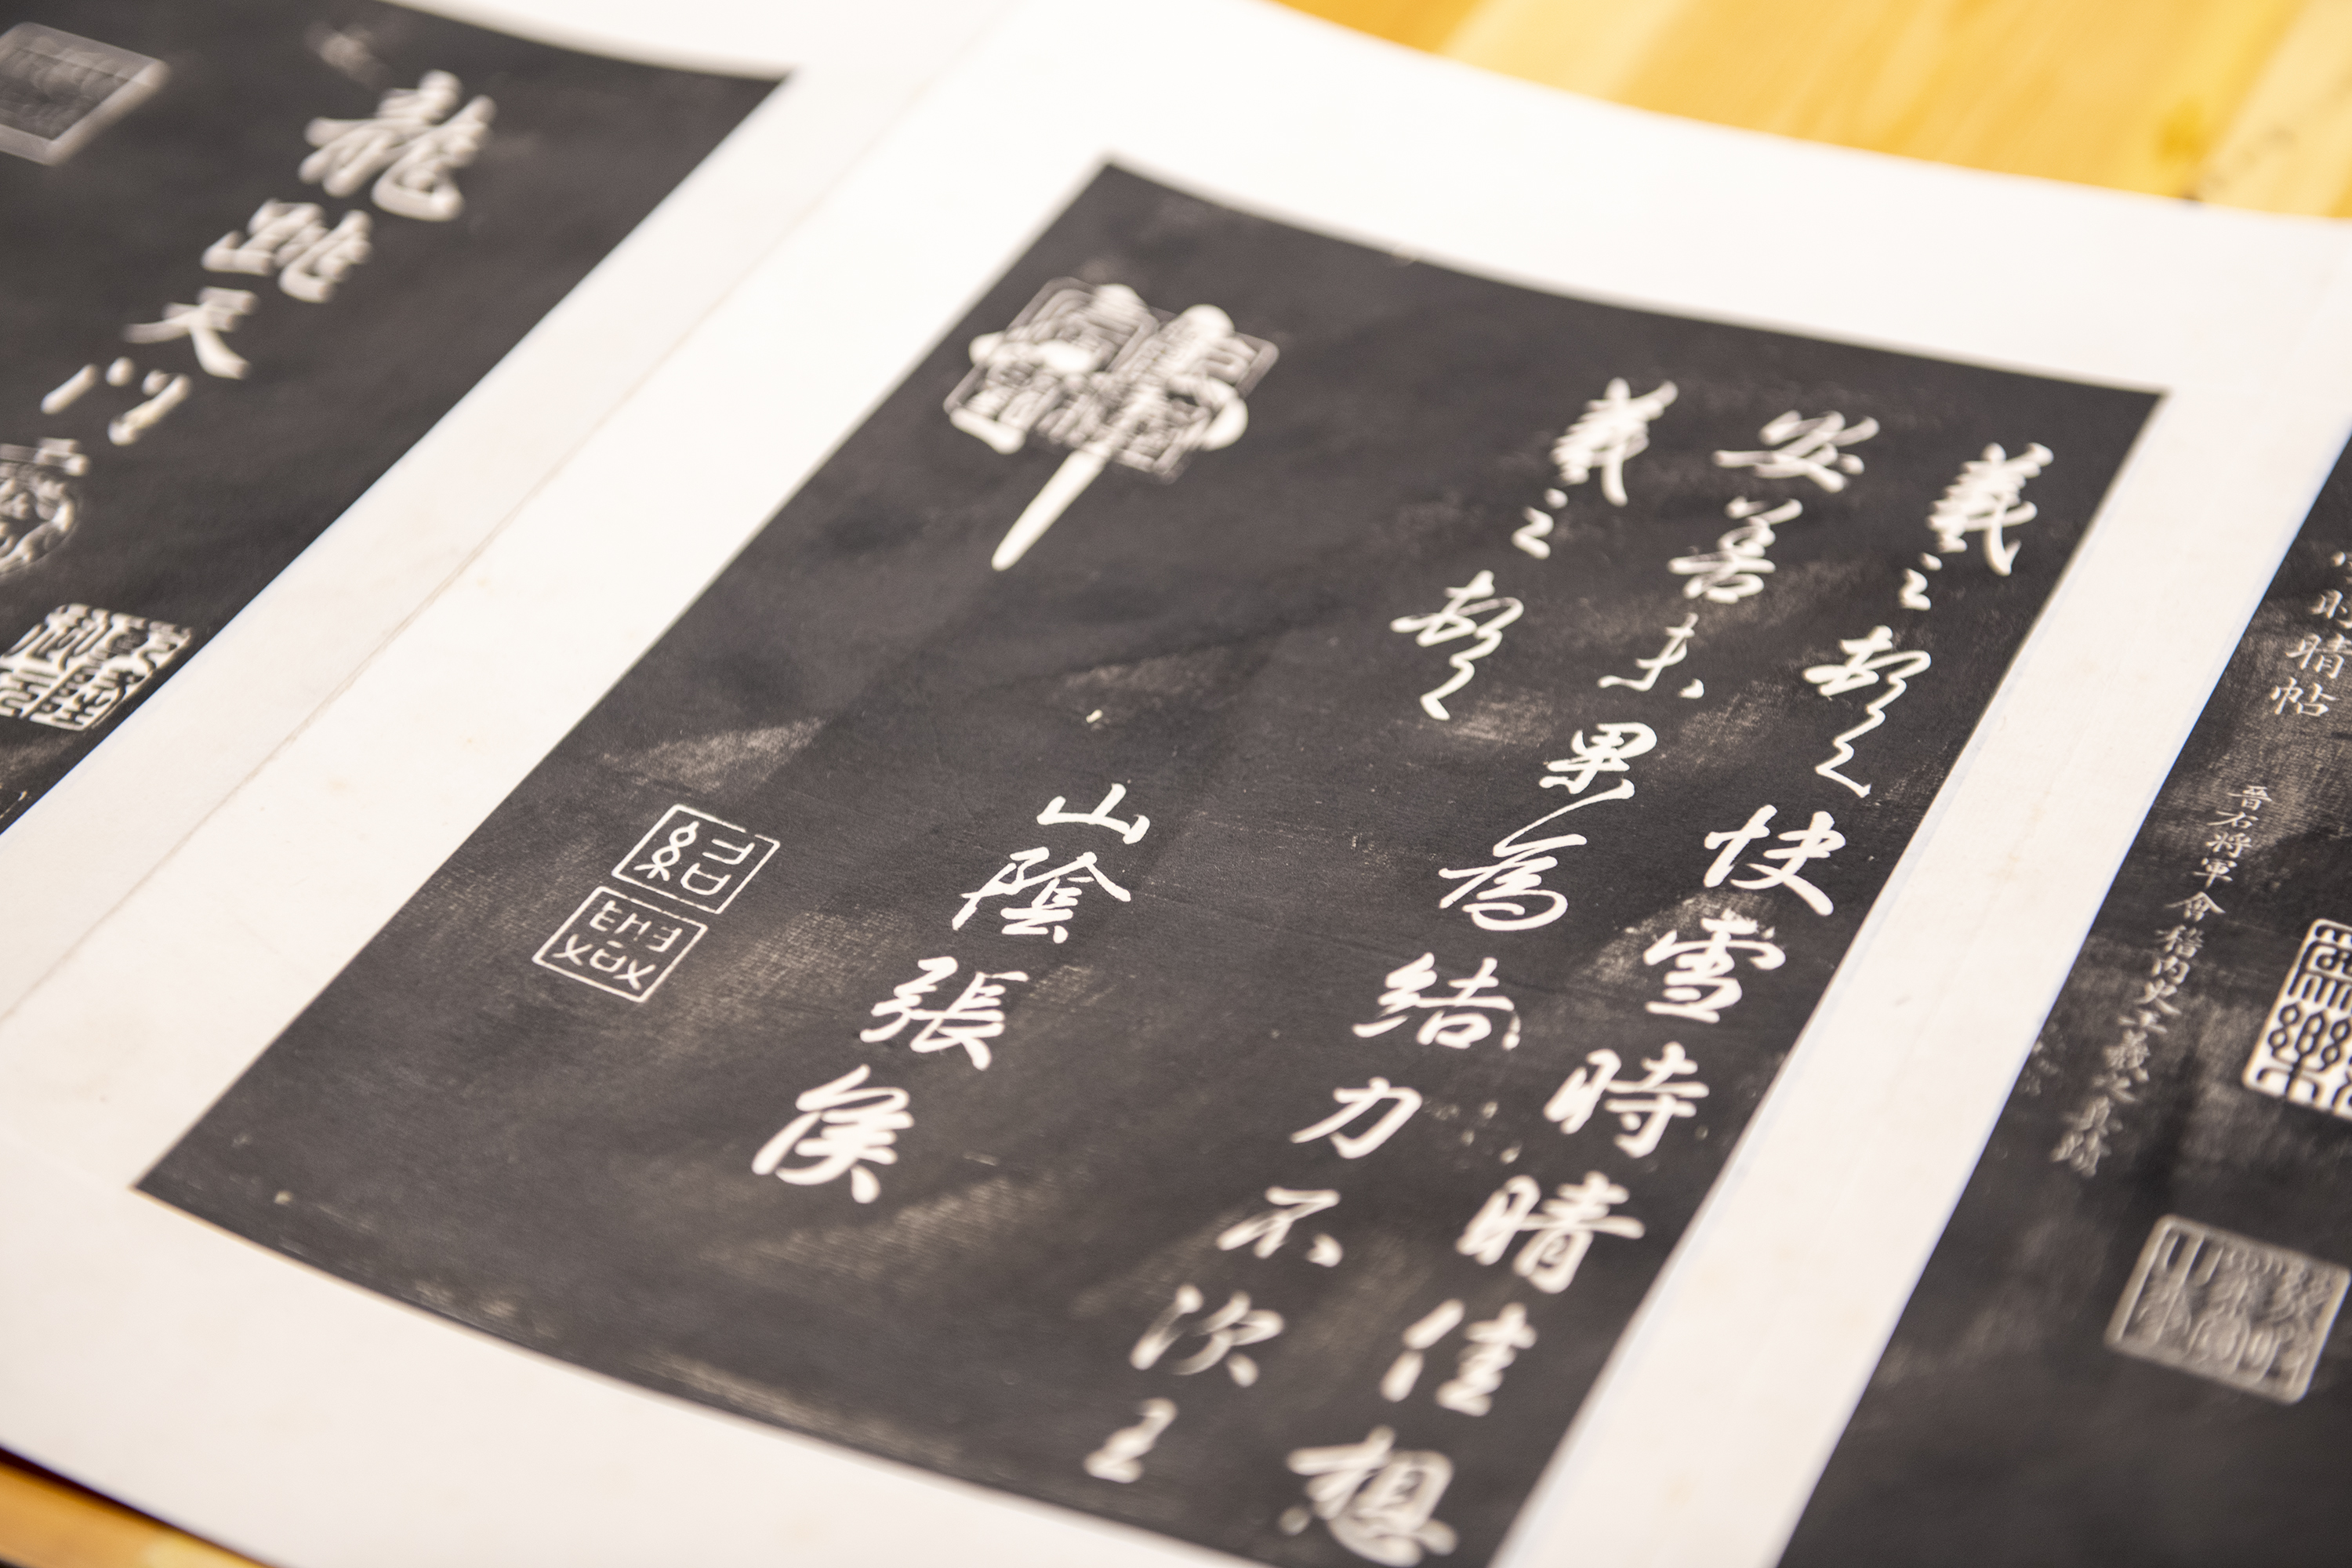 時晴帖
晉右將軍會稽內史王羲之真跡
羲之頓首快雪時晴佳想
安善未果為結力不次王
羲之頓首
山陰張侯
紹
龍跳天門